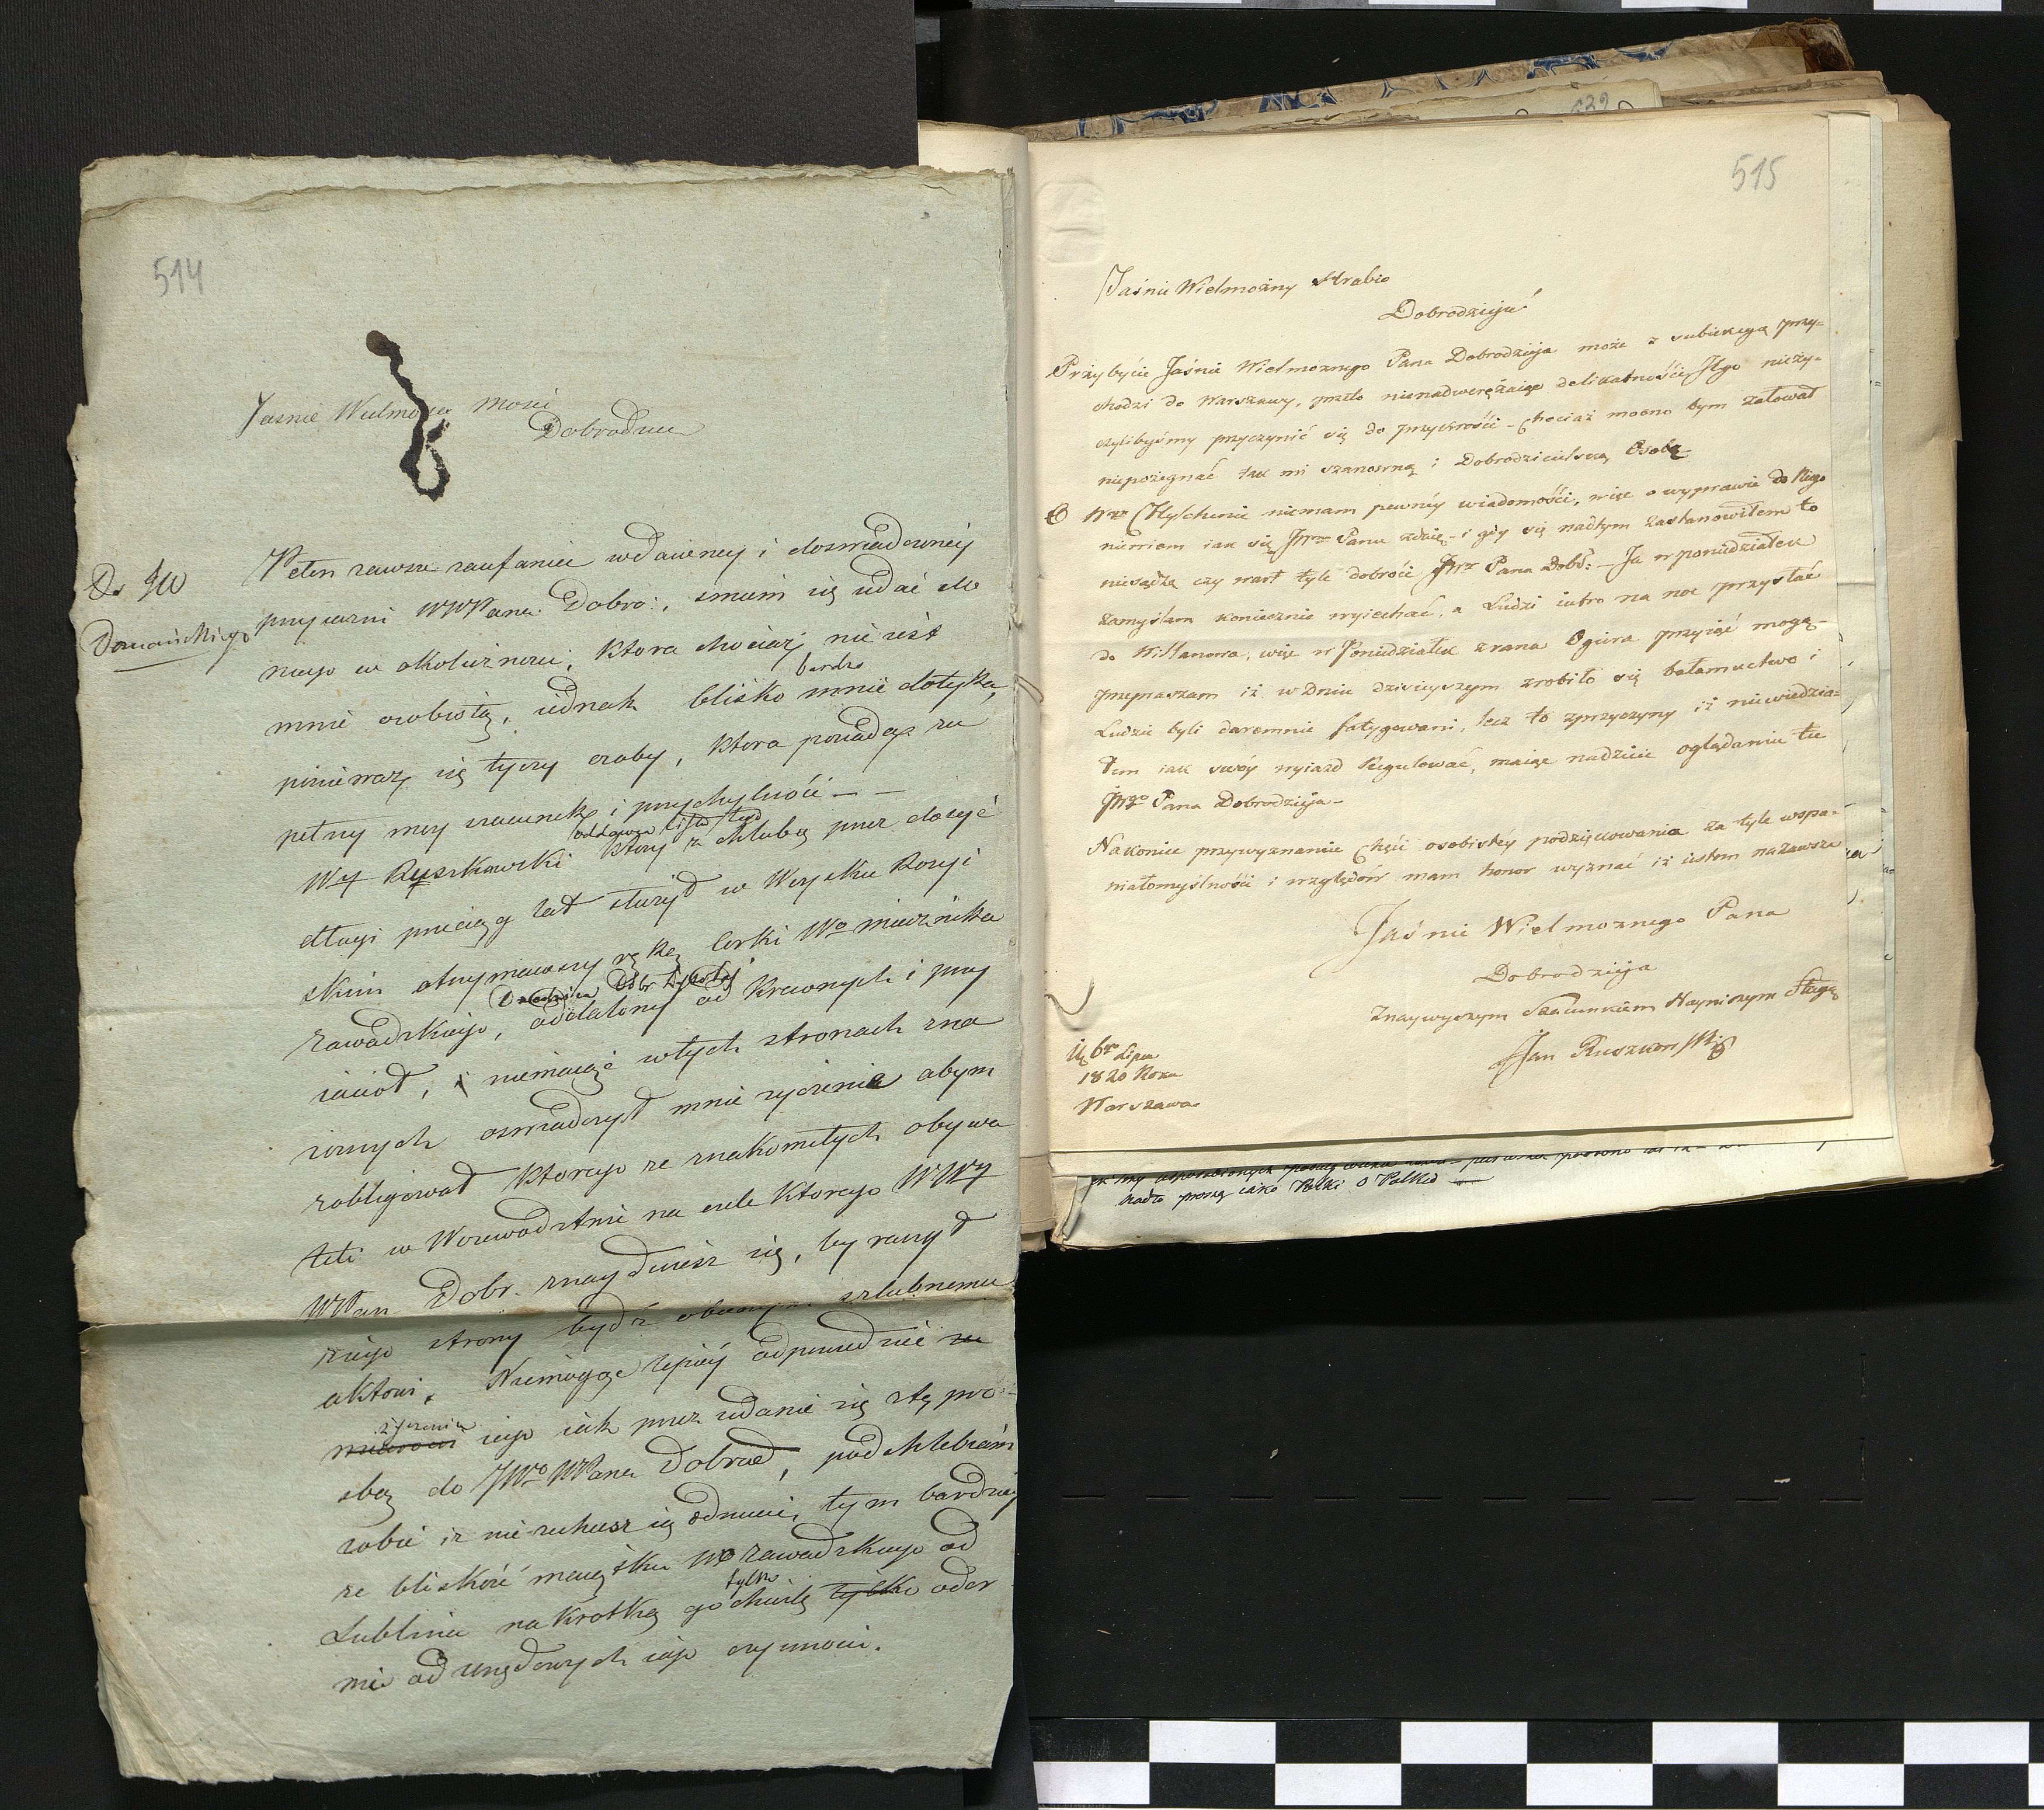 514
Jasnie Wielmożny Mosci
Dobrodzieu
Do JW
Domańskiego
Pełen zawsze zaufania w dawney i doswiadczoney
przyiazni WWPana Dobro:, smiem się udać do
niego w okoliczności, ktora chociaż nie iest
mnie osobistą, iednak blisko bardzo mnie dotyka,
ponieważ się tyczy osoby, ktora posiada
pełny moy szacunek i przychylność —
Wy Ruszkowski oddawca listu tego ktory z chlubą przez dosyć
długi przeciąg lat służył w Woysku Rosyi
skim otrzymawszy rękę Corki Wo Miecznika
Zawadzkiego, Dziedzica Dobr oddalony od krewnych i przy
iacioł, i niemaiąc w tych stronach zna
iomych oswiadczył mnie życzenie abym
zobligował ktorego ze znakomitych obywa
teli w Woiewodztwie na czele ktorego WWy
WPan Dobr. znayduiesz się, by raczył
z iego strony bydź obecnym szlubnemu
aktowi. Niemogąc lepiey odpowiedzieć
życzeniu iego iak przez udanie się z tą pro
sbą do JWo WPana Dobrod, podchlebiam
sobie iz nie zechcesz iey odmucić, tym bardziey
ze bliskość maiątku Wo Zawadzkiego od
Lublina na krotką go chwilę tylko tylko oder
wie od urzędowych iego czynności.
515
Jaśnie Wielmożny Hrabio
Dobrodzieju
Przybycie Jaśnie Wielmożnego Pana Dobrodzieja może z subiekcyą przy-
chodzi do Warszawy, przeto nienadwerężaiąc delikatności Jego nieży-
czylibyśmy przyczynić się do przykrości - chociaż mocno bym żałował
niepożegnać tak mi szanowną i Dobrodzieielską Osobę
O niemam pewnéy wiadomości, więc o wyprawie do Niego
niewiem iak się JWmu Panu zdaie - i gdy się nad tym zastanowiłem to
niesądzę czy wart tyle dobroci JWo Pana Dobr: - Ja w poniedziałek
zamyślam koniecznie wyiechać, a Ludzi iutro na noc przysłać
do Willanowa, więc w Poniedziałek zrana Ogiera przyiąć mogą -
przepraszam iż w Dniu dzisieyszym zrobiło się bałamuctwo i
Ludzie byli daremnie fatygowani, lecz to z przyczyny iż niewiedzia-
łem iak swóy wyiazd Regulować, maiąc nadzieie oglądania tu
JWgo Pana Dobrodzieja -
Nakoniec przy wyznaniu Chęci osobistéy podziękowania za tyle wspa-
niałomyślności i względów mam honor wyznać iż iestem na zawsze
Jaśnie Wielmożnego Pana
Dobrodzieja
Z naywyższym Szacunkiem Nayniższym Sługą
Jan Ruszkowski
6br Lipca
1820 Roku
Warszawa